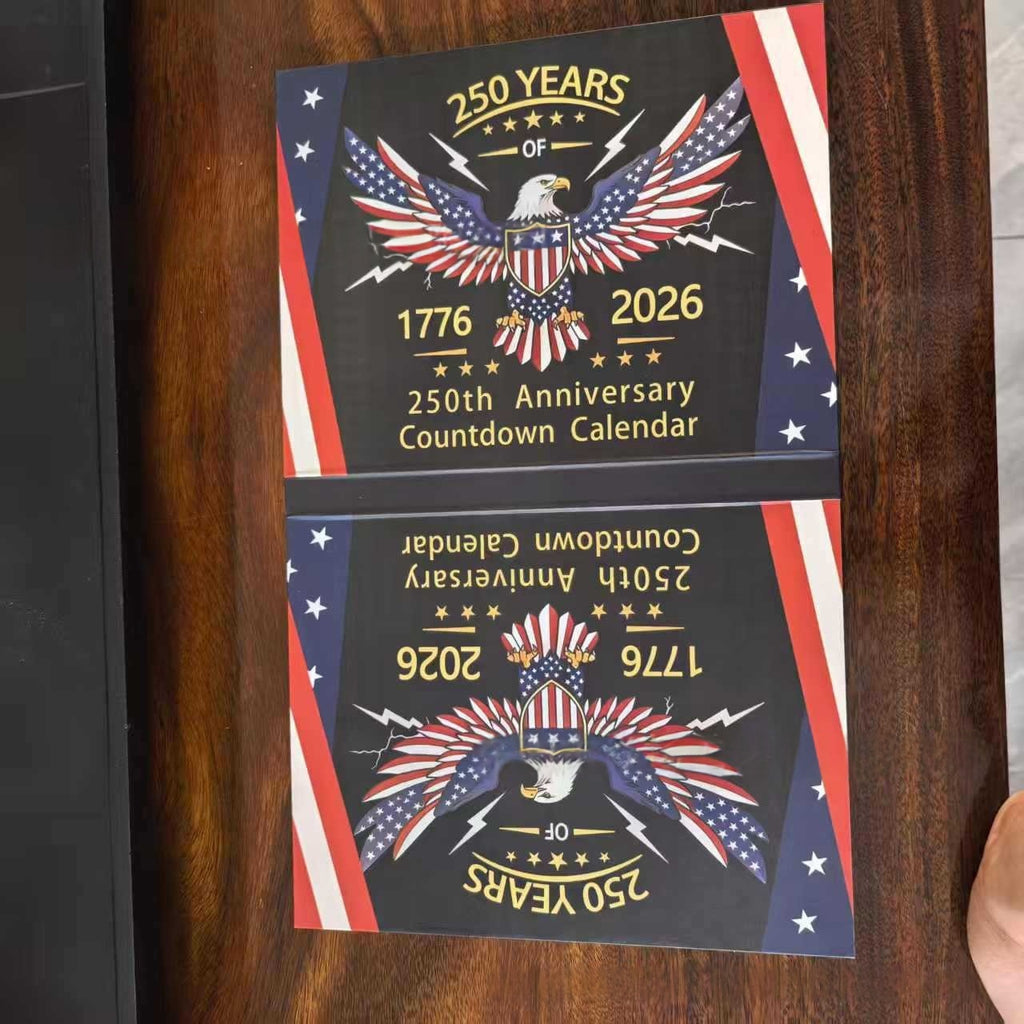 250 YEARS
OF
1776 2026
250th Anniversary
Countdown Calendar
250 YEARS
OF
1776 2026
250th Anniversary
Countdown Calendar